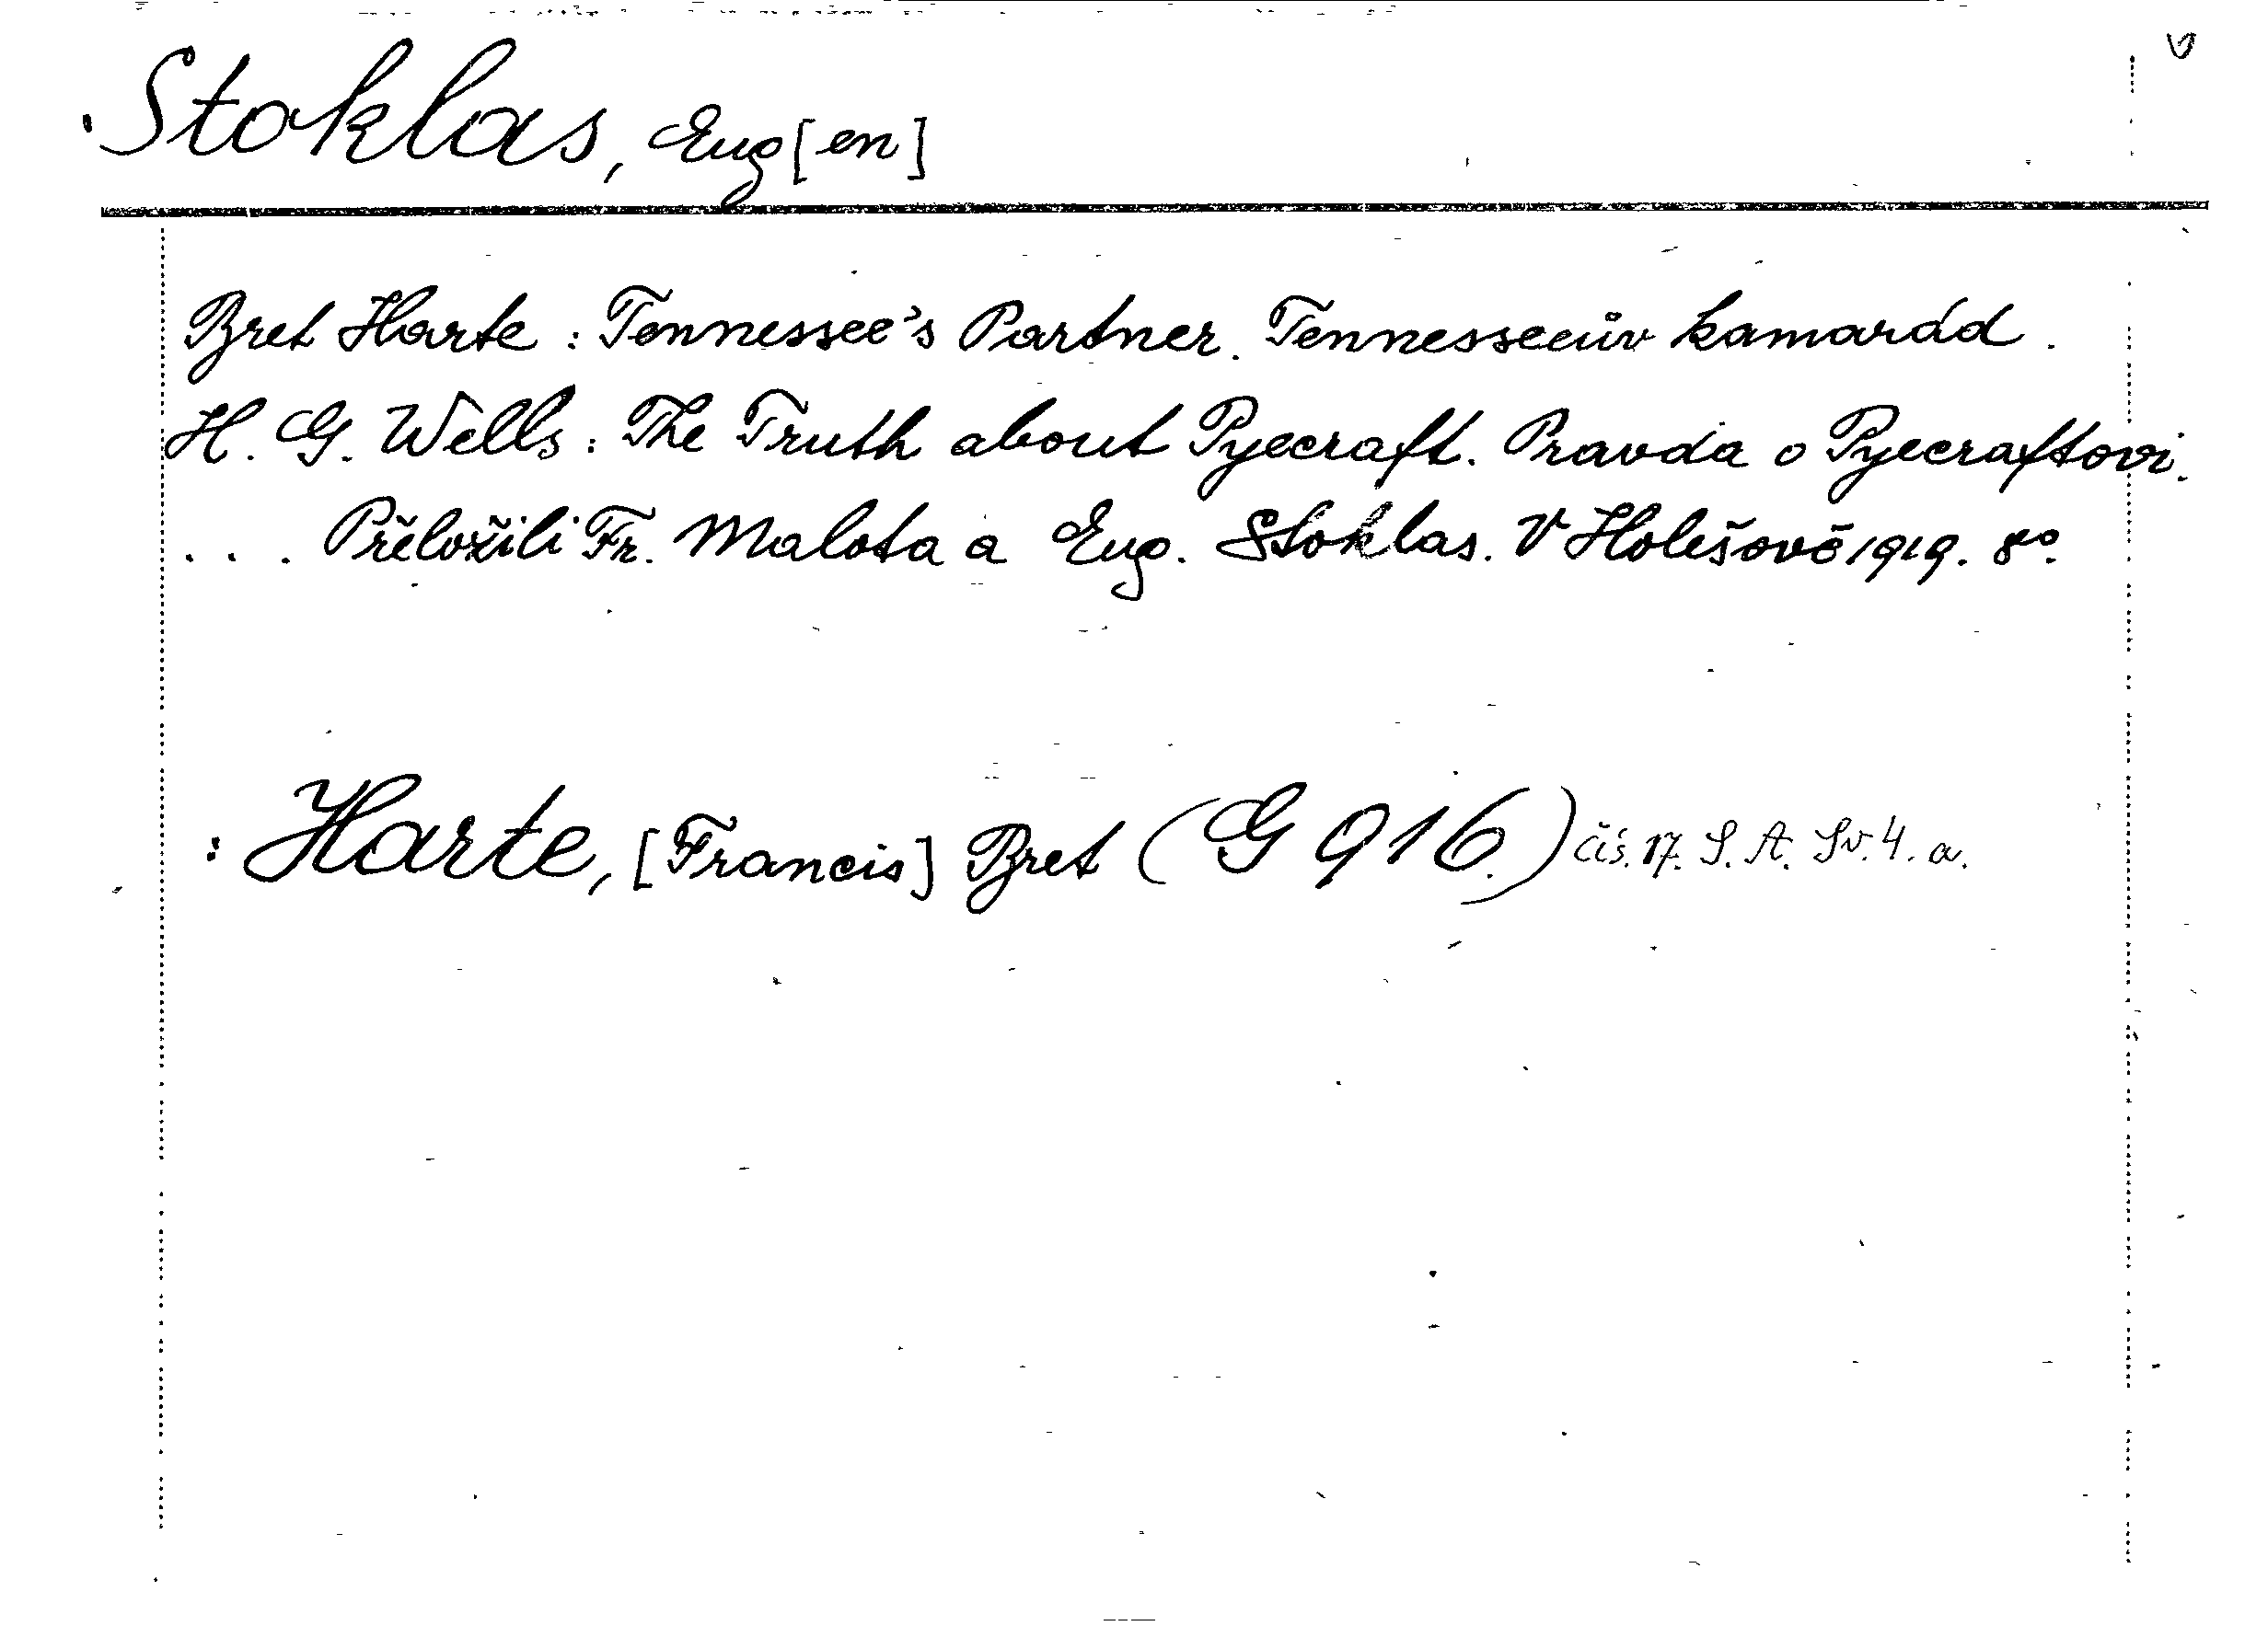 Stoklas, Eug[en]
Bret Harte: Tennessee's Partner. Tennesseeův kamarád.
H. G. Wells: The Truth about Pyecraft. Pravda o Pyecraftovi.
... Přeložili Fr. Malota a Eug. Stoklas. V Holešově 1919. 8°.
: Harte, [Francis] Bret (G 916.) čís. 17. S. A. Sv. 4. a.